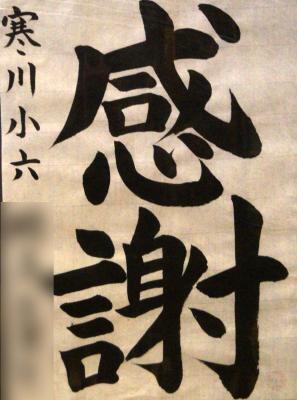 感謝
寒川小六